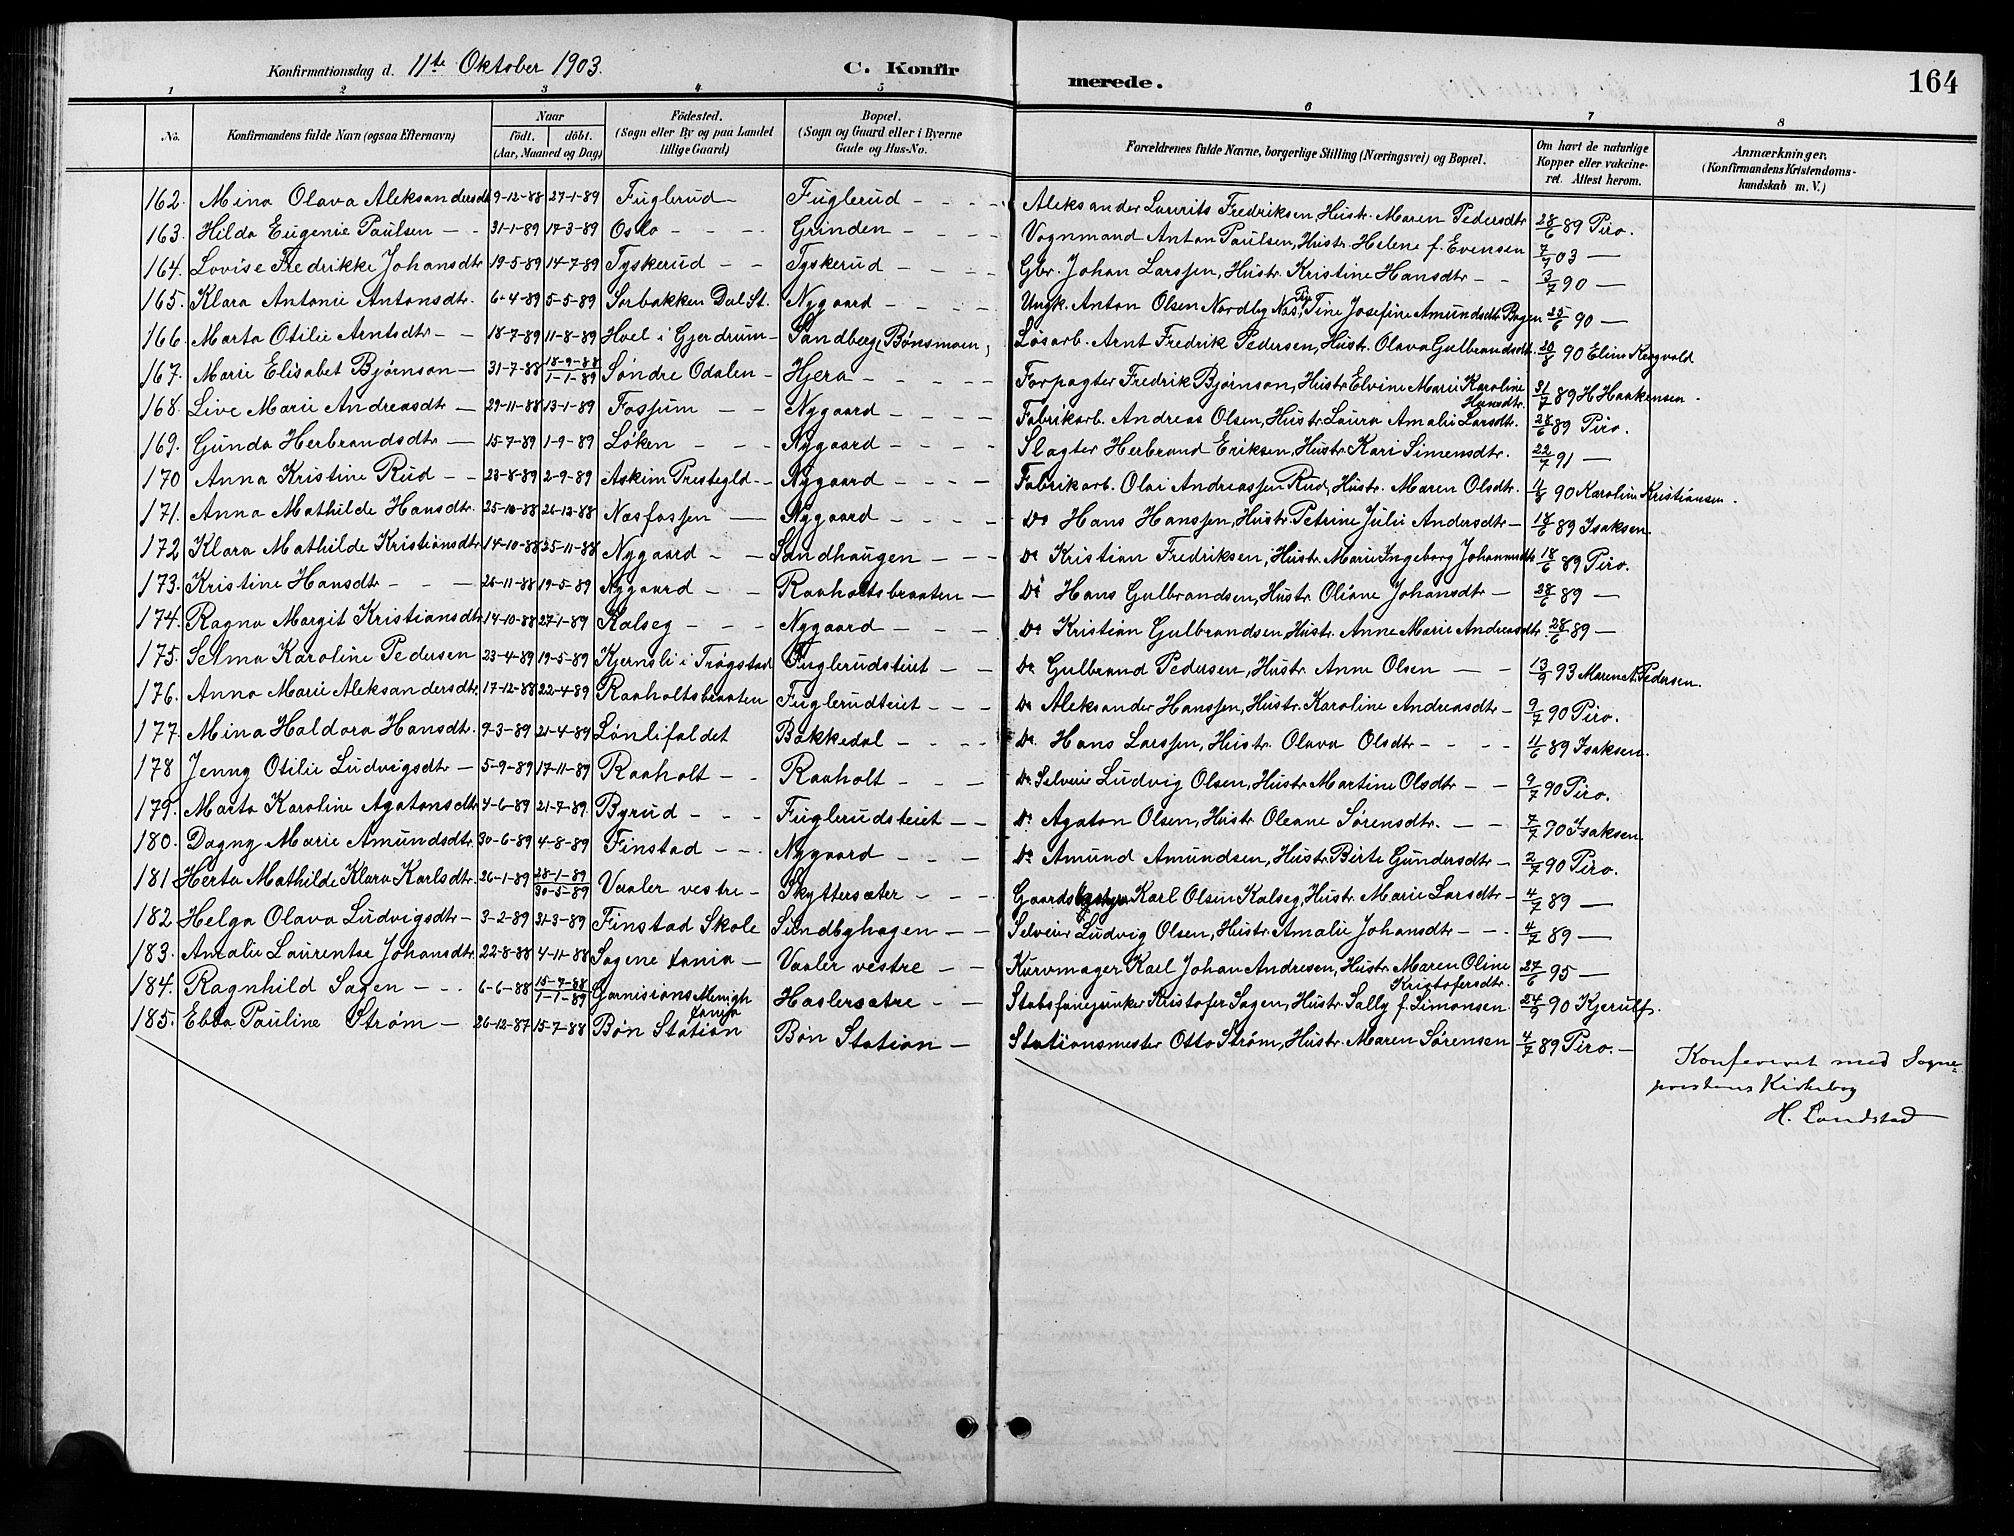 Konfirmationsdag d. 11te Oktober 1903. C. Konfirmerede. 164
1 2 3 4 5 6 7 8
No. Konfirmandens fulde Navn (ogsaa Efternavn) Naar födt. döbt. (Aar, Maaned og Dag) Födested. (Sogn eller By og paa Landet tillige Gaard) Bopæl. (Sogn og Gaard eller i Byerne Gade og Hus-No. Forældrenes fulde Navne, borgerlige Stilling (Næringsvei) og Bopæl. Om havt de naturlige Kopper eller vakcineret. Attest herom. Anmærkninger. (Konfirmandens Kristendomskundskab m. V.)
162. Mina Olava Aleksandersdtr 9-12-88 27-1-89 Fuglerud Fuglerud Aleksander Laurits Fredriksen, Hustr. Maren Pedersdtr 28/6 89 Piro.
163. Hilda Eugenie Paulsen 31-1-89 17-3-89 Oslo Grinden Vognmand Anton Paulsen, Hustr. Helene f. Evensen 7/7 03 —
164. Lovise Fredrikke Johansdtr 19-5-89 14-7-89 Tyskerud Tyskerud Gbr. Johan Larssen, Hustr. Kristine Hansdtr 3/7 90 —
165. Klara Antonie Antonsdtr. 6-4-89 5-5-89 Sorbakken Dal St. Nygaard Ungk. Anton Olsen Nordby Nas, Pig. Tine Josefine Amundsdtr Bagen 25/6 90 —
166. Marta Otilie Arntsdtr 18-7-89 11-8-89 Hvel i Gjerdrum Sandberg, Bønsmoen Løsarb. Arnt Fredrik Pedersen, Hustr. Olava Gulbrandsdt. 20/8 90 Eline Kergvald
167. Marie Elisabet Bjørnson 31-7-88 18-9-88 1-1-89 Søndre Odalen Hjera Forpagter Fredrik Bjørnson, Hustr Elvine Marie Karoline Hansdtr. 31/7 89 H Haakensen
168. Live Marie Andreasdtr 29-11-88 13-1-89 Fossum Nygaard Fabrikarb. Andreas Olsen, Hustr Laura Amalie Larsdtr. 28/6 89 Piro.
169. Gunda Herbrandsdtr 15-7-89 1-9-89 Løken Nygaard Slagter Herbrand Eriksen, Hustr. Kari Simensdtr. 22/7 91 —
170 Anna Kristine Rud 23-8-89 2-9-89 Askim Prestegld. Nygaard Fabrikarb. Olai Andreassen Rud, Hustr. Maren Olsdtr. 90 Karoline Kristiansen.
171. Anna Mathilde Hansdtr. 25-10-88 26-12-88 Næsfossen Nygaard Do Hans Hanssen, Hustr. Petrine Julie Andersdtr 18/6 89 Isaksen
172 Klara Mathilde Kristiansdtr 14-10-88 25-11-88 Nygaard Sandhaugen Do Kristian Fredriksen, Hustr. Marie Ingeborg Johannesdtr 18/6 89 Piro.
173. Kristine Hansdtr 26-11-88 19-5-89 Nygaard Raaholtsbraaten Do Hans Gulbrandsen, Hustr Oliane Johansdtr 28/6 89 —
174. Ragna Margit Kristiansdtr 14-10-88 27-1-89 Kalseg Nygaard Do Kristian Gulbrandsen, Hustr. Anne Marie Andreasdtr 28/6 89 —
175. Selma Karoline Pedersen 23-4-89 19-5-89 Kjernsli i Trøgstad Fuglerudsteiet Do Gulbrand Pedersen, Hustr Anne Olsen 13/9 93 Maren A. Pedersen.
176. Anna Marie Aleksandersdtr. 17-12-88 22-4-89 Raaholtsbraaten Fuglerudteiet Do Aleksander Hanssen, Hustr. Karoline Andreasdtr 9/7 90 Piro.
177 Mina Haldora Hansdtr. 9-3-89 21-4-89 Lønlifaldet Bakkedal Do. Hans Larssen, Hustr. Olava Olsdtr 11/6 89 Isaksen.
178 Jenny Otilie Ludvigsdtr 5-9-89 17-11-89 Raaholt Raaholt Do Selveier Ludvig Olsen, Hustr Martine Olsdtr 9/7 90 Piro.
179. Marta Karoline Agatonsdtr 4-6-89 21-7-89. Byrud Fuglerudsteiet Do Agaton Olsen, Hustr Oleane Sørensdtr. 7/7 90 Isaksen
180. Dagny Marie Amundsdtr. 30-6-89 4-8-89 Finstad Nygaard Do Amund Amundsen, Hustr. Birte Gundersdtr 2/7 90 Piro.
181 Herta Mathilde Klara Karlsdtr 26-1-89 28-1-89 30-5-89 Vaaler vestre Skyttersæter Karl Olsen Kalseg, Hustr. Marie Larsdtr 4/7 89 —
182 Helga Olava Ludvigsdtr 3-2-89 31-3-89 Finstad Skole Sundbyhagen Selveier Ludvig Olsen, Hustr. Amalie Johansdtr 4/7 89 —
183. Amalie Laurentse Johansdtr 22-8-88 4-11-88 Sagene Kania Vaaler vestre Kurvmager Karl Johan Andresen, Hustr. Maren Oline Kristofersdtr. 27/6 95 —
184. Ragnhild Sagen 6-6-88 15-7-88 1-1-89 Garnisions Menigh. Kania Haslersætre Stabsfanejunker Kristofer Sagen, Hustr. Sally f. Simonsen 24/9 90 Kjerulf.
185. Ebba Pauline Strøm 26-12-87 15-7-88 Bøn Station Bøn Station Stationsmester Otto Strøm, Hustr. Maren Sørensen 4/7 89 Piro.
Konfereret med Sogne-
prestens Kirkebog
H. Landstad